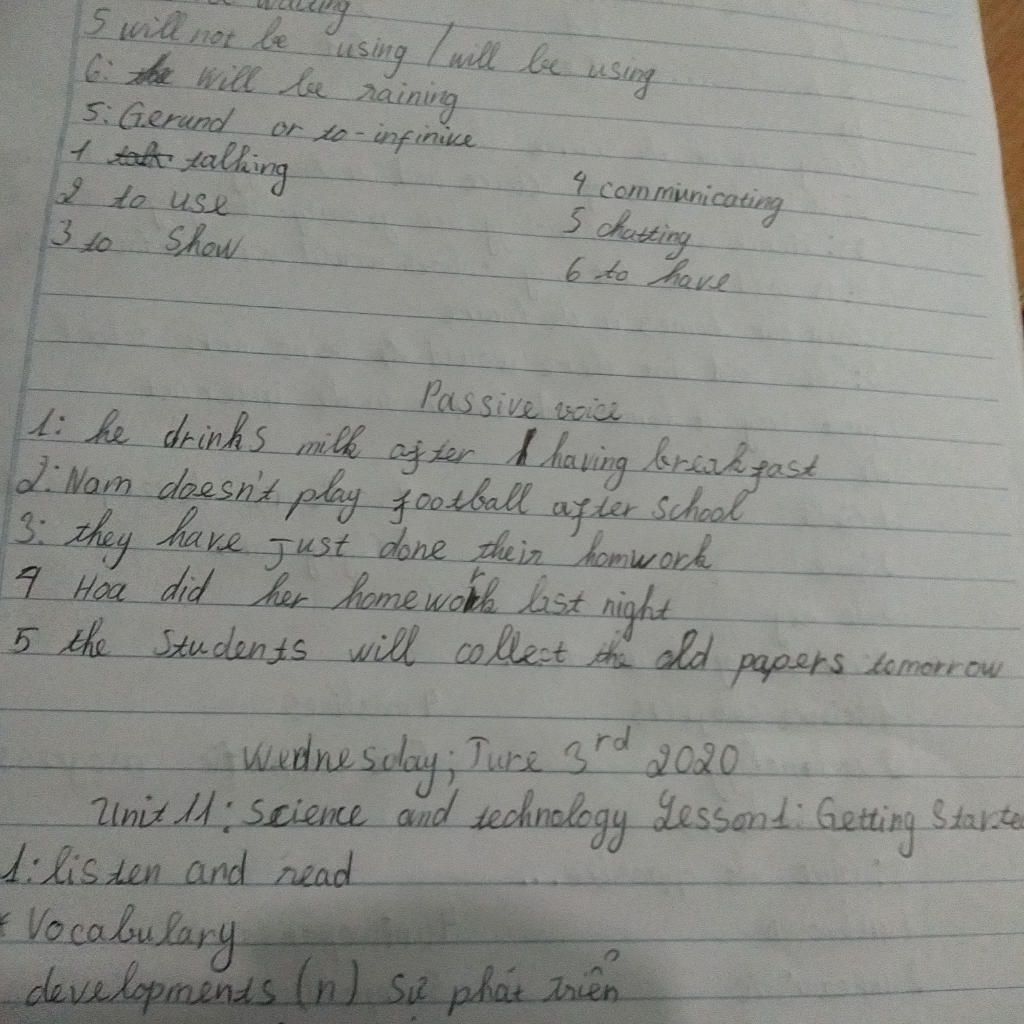 waiting
5 will not be using / will be using
6: will be raining
5: Gerund or to-infinive
1 talking
2 to use
3 to show
4 communicating
5 chatting
6 to have
Passive voice
1: he drinks milk after having breakfast
2: Nam doesn't play football after school
3: they have just done their homwork
4 Hoa did her homework last night
5 the students will collect the old papers tomorrow
Wednesday; June 3rd 2020
Unit 11: Science and technology Lesson1: Getting Starte
1: listen and read
* Vocabulary
developments (n) sự phát triển